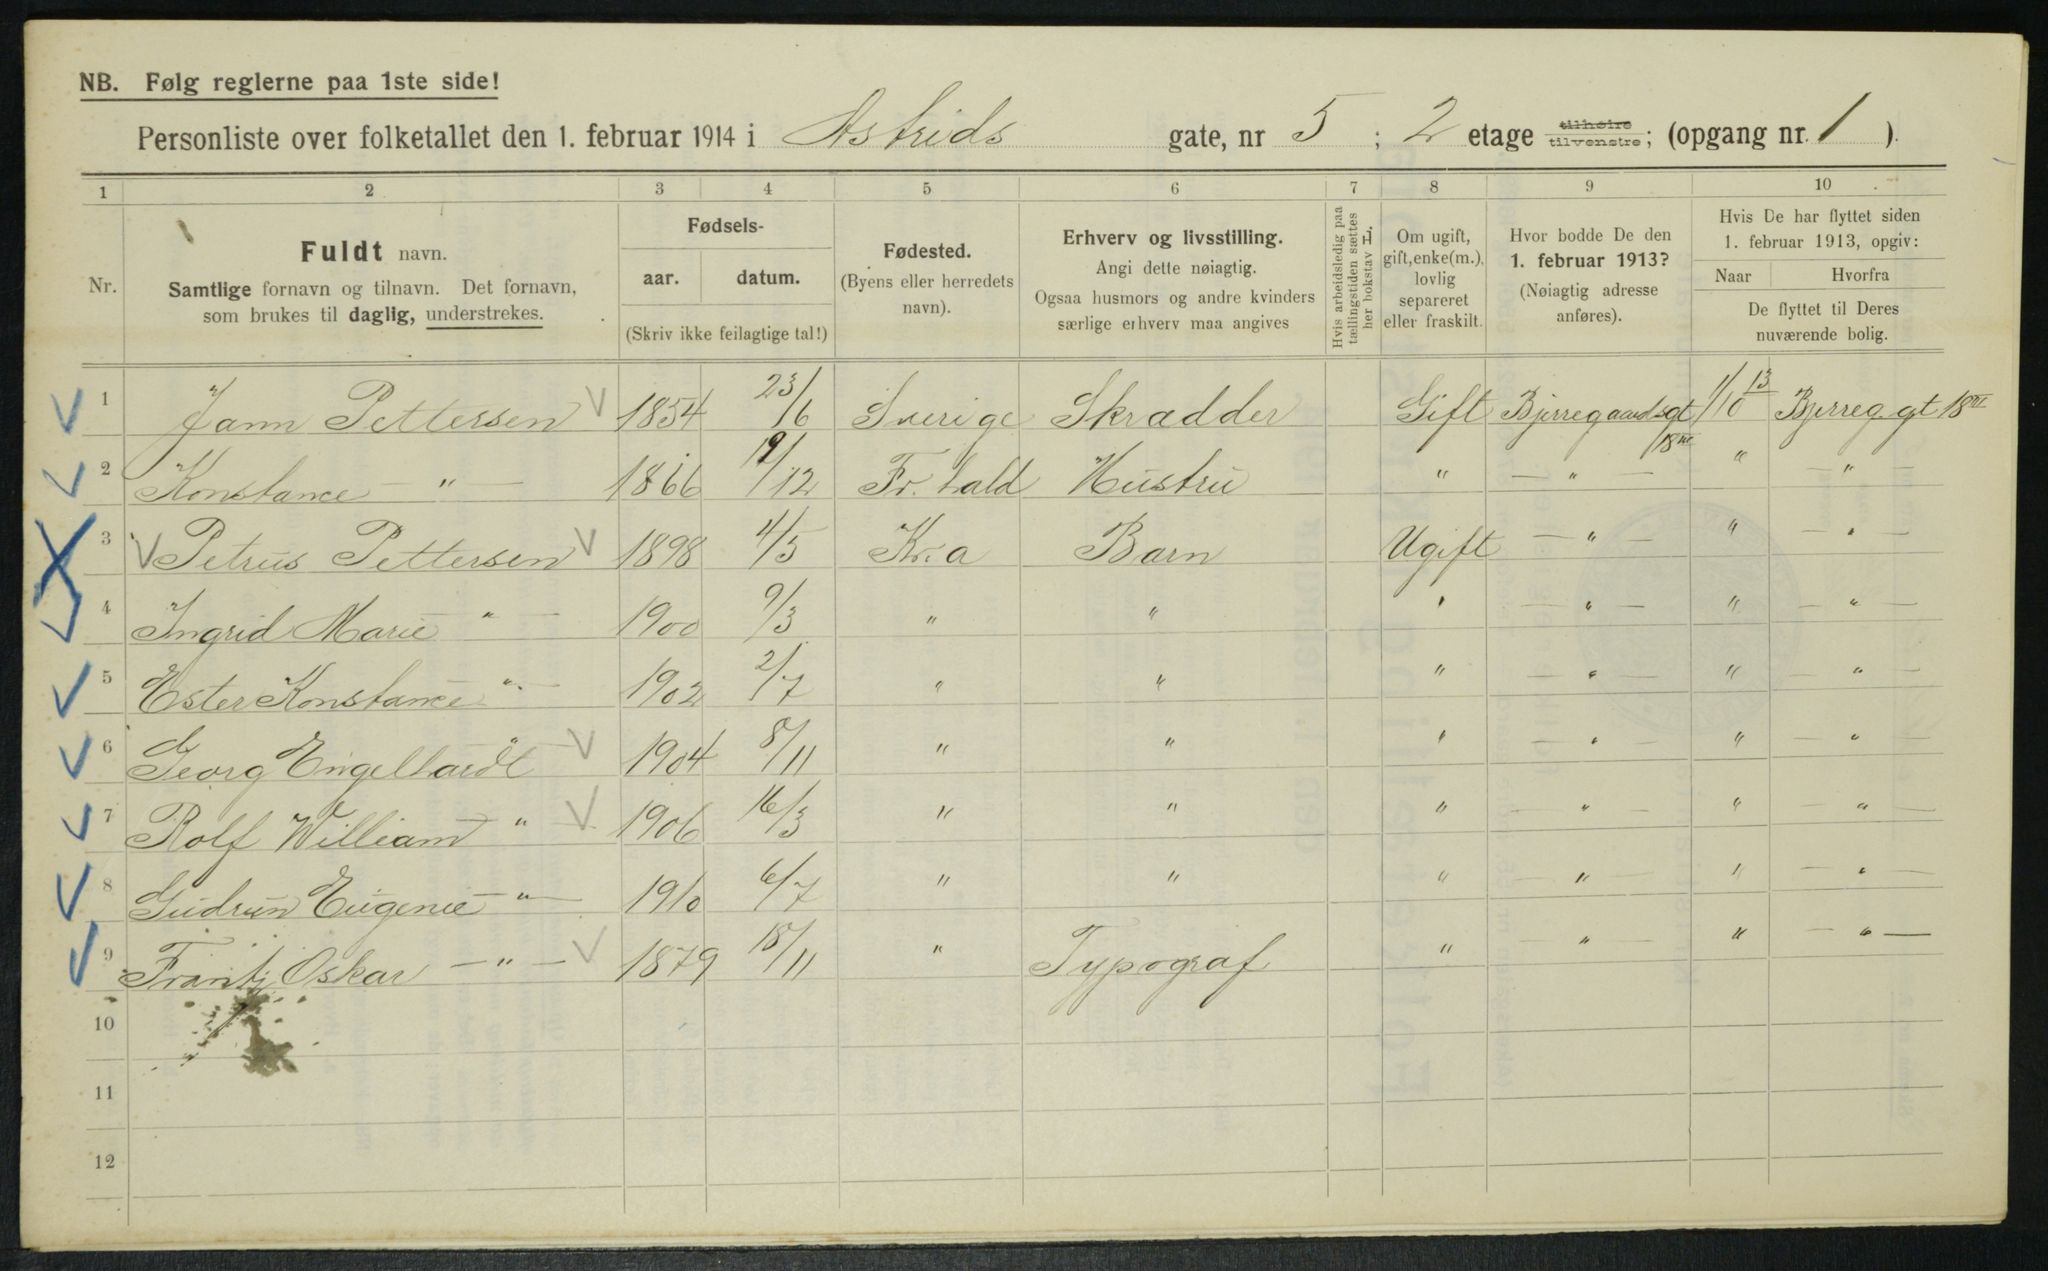 NB. Følg reglerne paa 1ste side!
Personliste over folketallet den 1. februar 1914 i Astrids gate, nr 5 ; 2 etage tilhøire tilvenstre; (opgang nr. 1 ).
1 2 3 4 5 6 7 8 9 10
Nr.
Fuldt navn.
Samtlige fornavn og tilnavn. Det fornavn,
som brukes til daglig, understrekes.
Fødsels-
aar. datum.
(Skriv ikke feilagtige tal!)
Fødested.
(Byens eller herredets
navn).
Erhverv og livsstilling.
Angi dette nøiagtig.
Ogsaa husmors og andre kvinders
særlige erhverv maa angives
Hvis arbeidsledig paa
tællingstiden sættes
her bokstav H.
Om ugift,
gift, enke(m.),
lovlig
separeret
eller fraskilt.
Hvor bodde De den
1. februar 1913?
(Nøiagtig adresse
anføres).
Hvis De har flyttet siden
1. februar 1913, opgiv:
Naar Hvorfra
De flyttet til Deres
nuværende bolig.
1 Jann Pettersen 1854 23/6 Sverige Skrædder Gift Bjerregaardsgt 18 III 1/10 13 Bjerreg.gt 18 III
2 Konstance — " — 1866 19/12 Fr.hald Hustru " — " — " — " —
3 Petrus Pettersen 1898 4/5 Kr.a Barn Ugift — " — " — " —
4 Ingrid Marie " — 1900 9/3 " " " — " — " — " —
5 Ester Konstance " — 1902 2/7 " " " — " — " — " —
6 Georg Engelhardt " 1904 8/11 " " " — " — " — " —
7 Rolf William " — 1906 16/3 " " " — " — " — " —
8 Gudrun Eugenie " — 1910 6/7 " " " — " — " — " —
9 Frantz Oskar — " — 1879 18/11 " Typograf " — " — " — " —
10
11
12